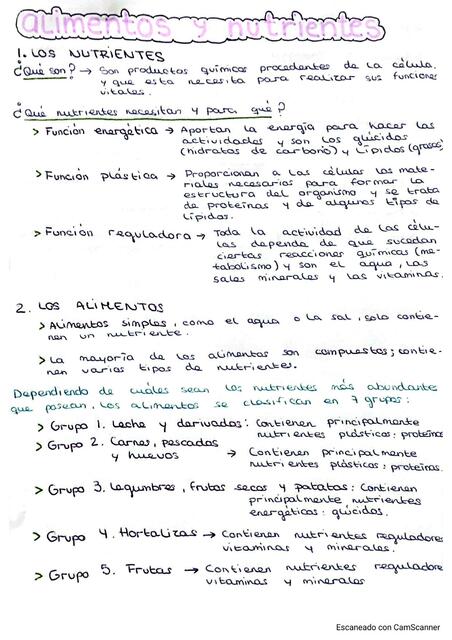 alimentos y nutrientes
1. LOS NUTRIENTES
¿Qué son? → Son productos químicos procedentes de la célula,
y que esta necesita para realizar sus funciones
vitales.
¿Qué nutrientes necesitan y para qué?
> Función energética → Aportan la energía para hacer las
actividades y son los glúcidos
(hidratos de carbono) y lípidos (grasas)
> Función plástica → Proporcionan a las células los mate-
riales necesarios para formar la
estructura del organismo y se trata
de proteínas y de algunos tipos de
lípidos.
> Función reguladora → Toda la actividad de las célu-
las depende de que sucedan
ciertas reacciones químicas (me-
tabolismo) y son el agua, las
sales minerales y las vitaminas.
2. LOS ALIMENTOS
> Alimentos simples, como el agua o la sal, solo contie-
nen un nutriente.
> La mayoría de los alimentos son compuestos; contie-
nen varios tipos de nutrientes.
Dependiendo de cuáles sean los nutrientes más abundantes
que posean, los alimentos se clasifican en 7 grupos:
> Grupo 1. Leche y derivados: Contienen principalmente
nutrientes plásticos: proteínas
> Grupo 2. Carnes, pescados
y huevos → Contienen principalmente
nutrientes plásticos: proteínas.
> Grupo 3. Legumbres, frutos secos y patatas: Contienen
principalmente nutrientes
energéticos: glúcidos.
> Grupo 4. Hortalizas → Contienen nutrientes reguladores
vitaminas y minerales.
> Grupo 5. Frutas → Contienen nutrientes reguladore
vitaminas y minerales
Escaneado con CamScanner